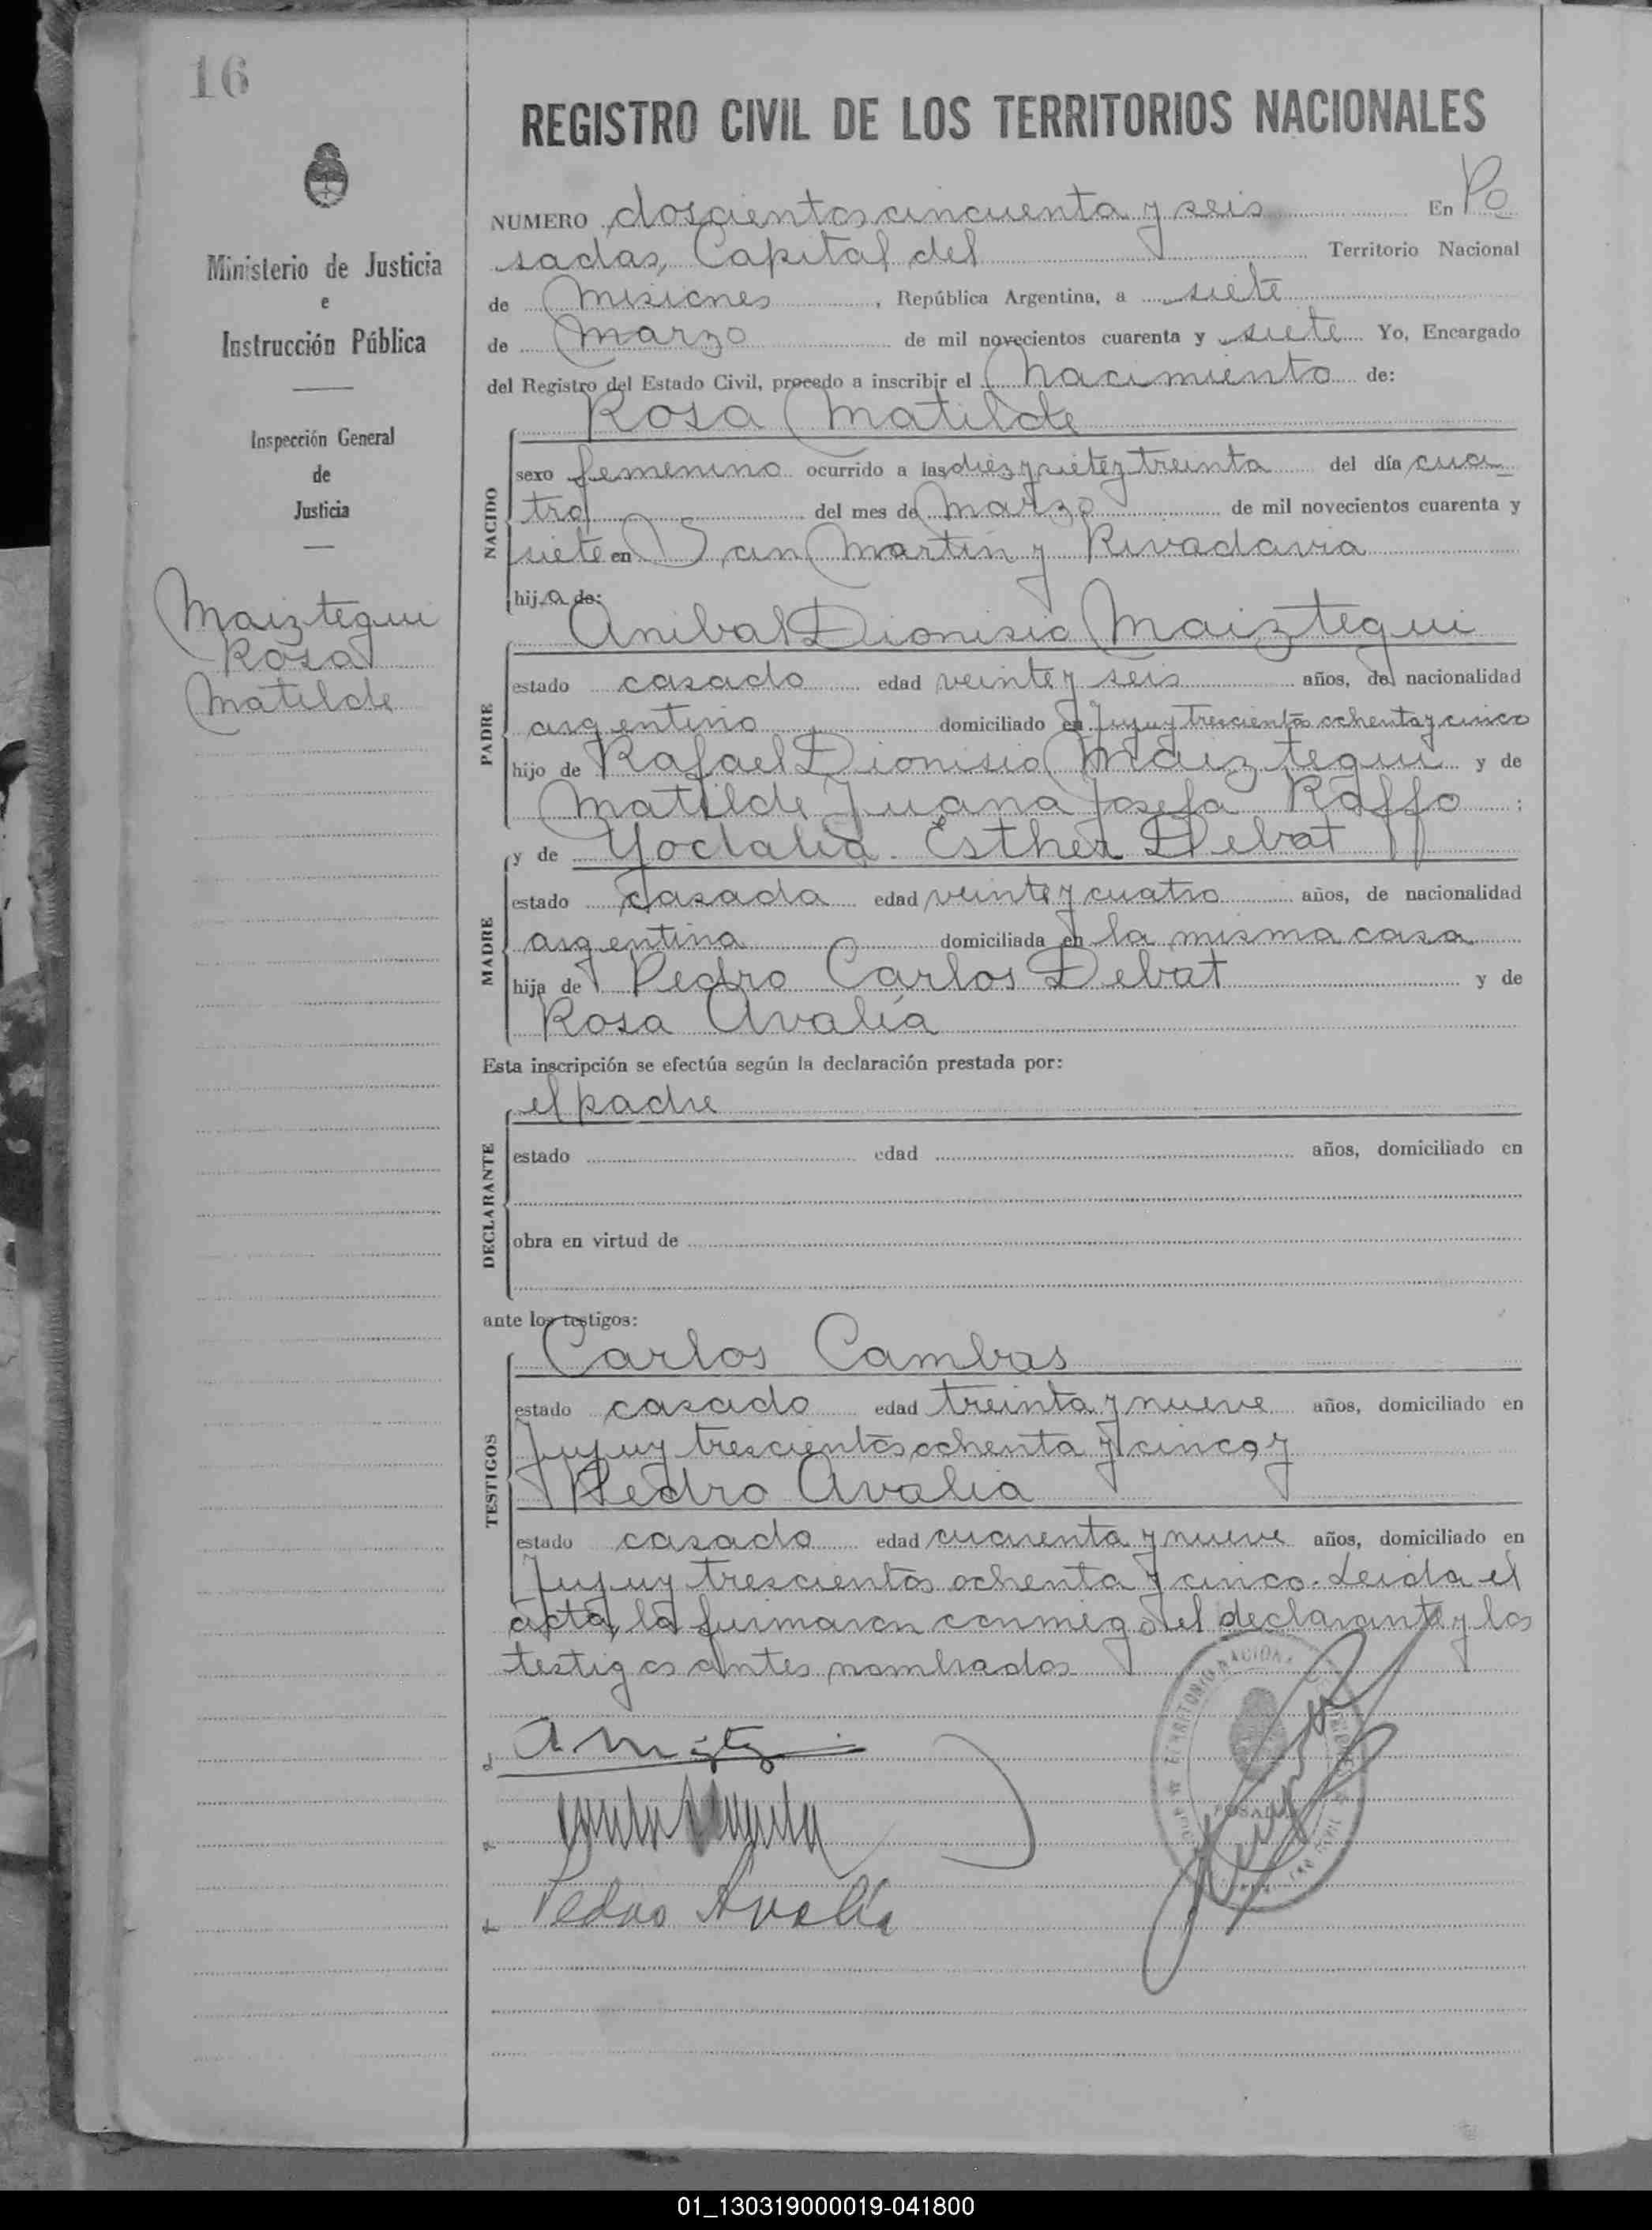 16
REGISTRO CIVIL DE LOS TERRITORIOS NACIONALES
Ministerio de Justicia
e
Instrucción Pública
Inspección General
de
Justicia
Maiztegui
Rosa
Matilde
NUMERO doscientos cincuenta y seis En Po
sadas, Capital del Territorio Nacional
de Misiones, República Argentina, a siete
de Marzo de mil novecientos cuarenta y siete Yo, Encargado
del Registro del Estado Civil, procedo a inscribir el Nacimiento de:
Rosa Matilde
NACIDO
sexo femenino ocurrido a las diez y siete y treinta del día cua
tro del mes de Marzo de mil novecientos cuarenta y
siete en San Martin y Rivadavia
hija de:
Anibal Dionisio Maiztegui
PADRE
estado casado edad veinte y seis años, de nacionalidad
argentino domiciliado en Jujuy trescientos ochenta y cinco
hijo de Rafael Dionisio Maiztegui y de
Matilde Juana Josefa Raffo ;
y de Yoclalia Esther Debat
MADRE
estado casada edad veinte y cuatro años, de nacionalidad
argentina domiciliada en la misma casa
hija de Pedro Carlos Debat y de
Rosa Avalía
Esta inscripción se efectúa según la declaración prestada por:
el padre
DECLARANTE
estado edad años, domiciliado en
obra en virtud de
ante los testigos:
Carlos Cambas
TESTIGOS
estado casado edad treinta y nueve años, domiciliado en
Jujuy trescientos ochenta y cinco, y
Pedro Avalia
estado casado edad cuarenta y nueve años, domiciliado en
Jujuy trescientos ochenta y cinco. Leida el
acta, la firmaron conmigo el declarante y los
testigos antes nombrados
Pedro Avalía
POSADAS
01_130319000019-041800